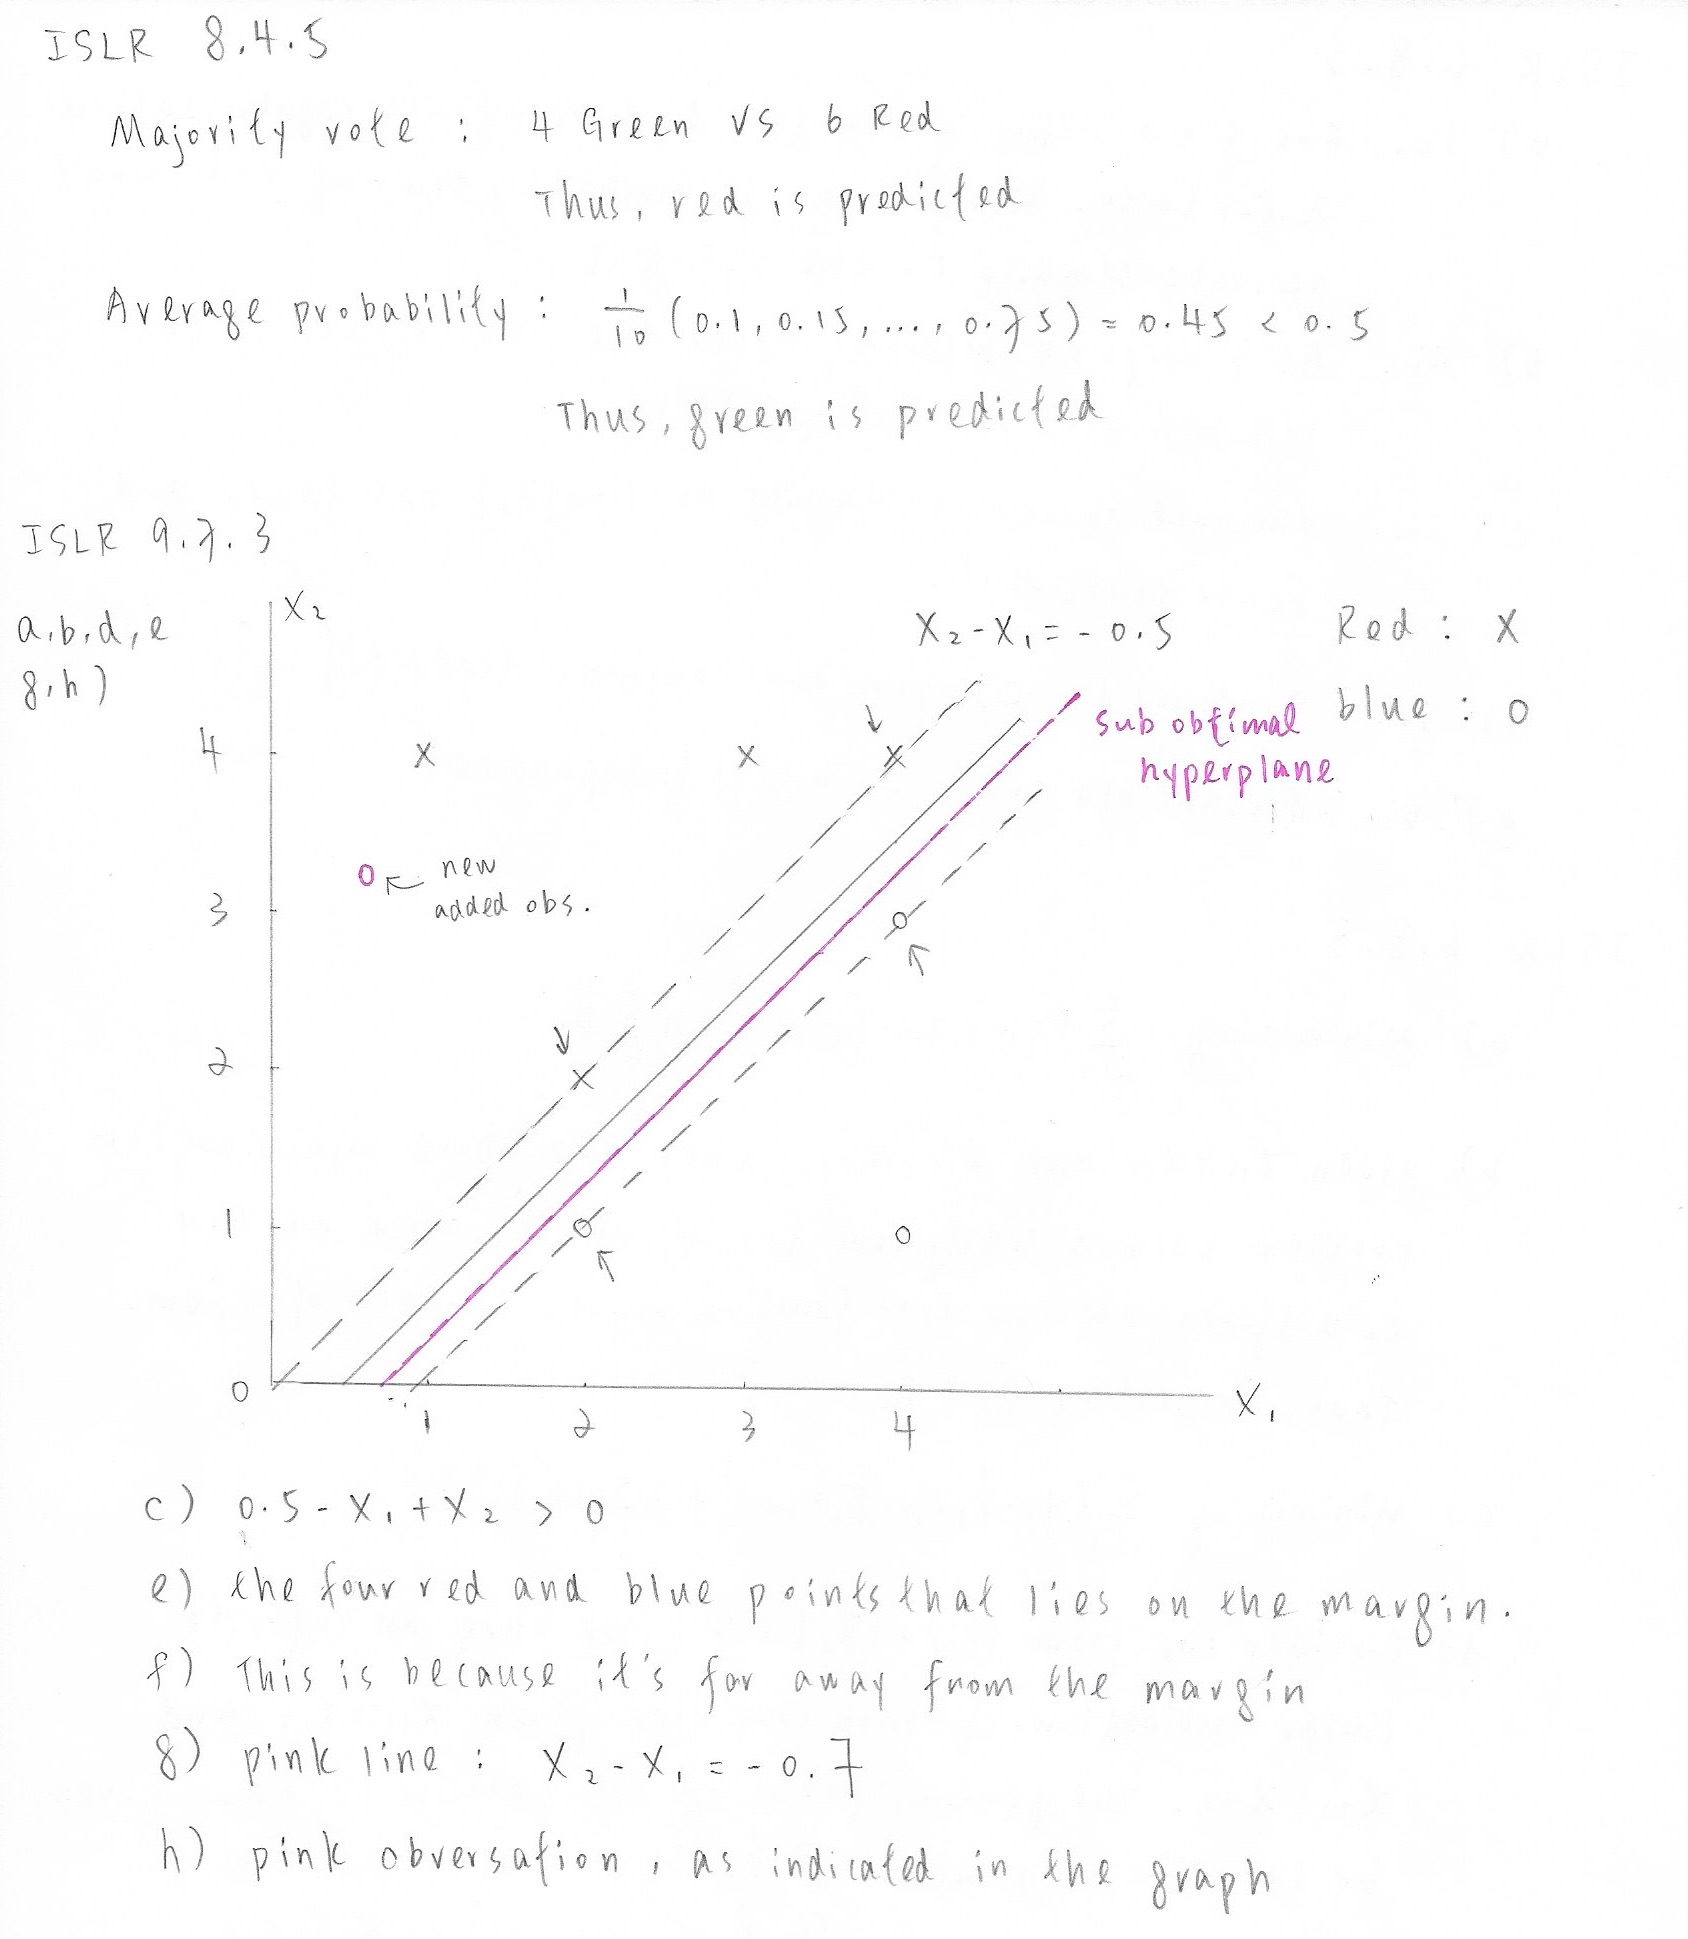 ISLR 8.4.5
Majority vote : 4 Green vs 6 Red
Thus, red is predicted
Average probability : 1/10 (0.1, 0.15, ..., 0.75) = 0.45 < 0.5
Thus, green is predicted
ISLR 9.7.3
a,b,d,e
g,h)
X₂
X₂-X₁ = -0.5
Red : X
blue : O
sub obtimal
hyperplane
4
new
added obs.
3
2
1
0
1 2 3 4
X₁
c) 0.5 - X₁ + X₂ > 0
e) the four red and blue points that lies on the margin.
f) This is because it's far away from the margin
g) pink line : X₂ - X₁ = -0.7
h) pink obversation, as indicated in the graph